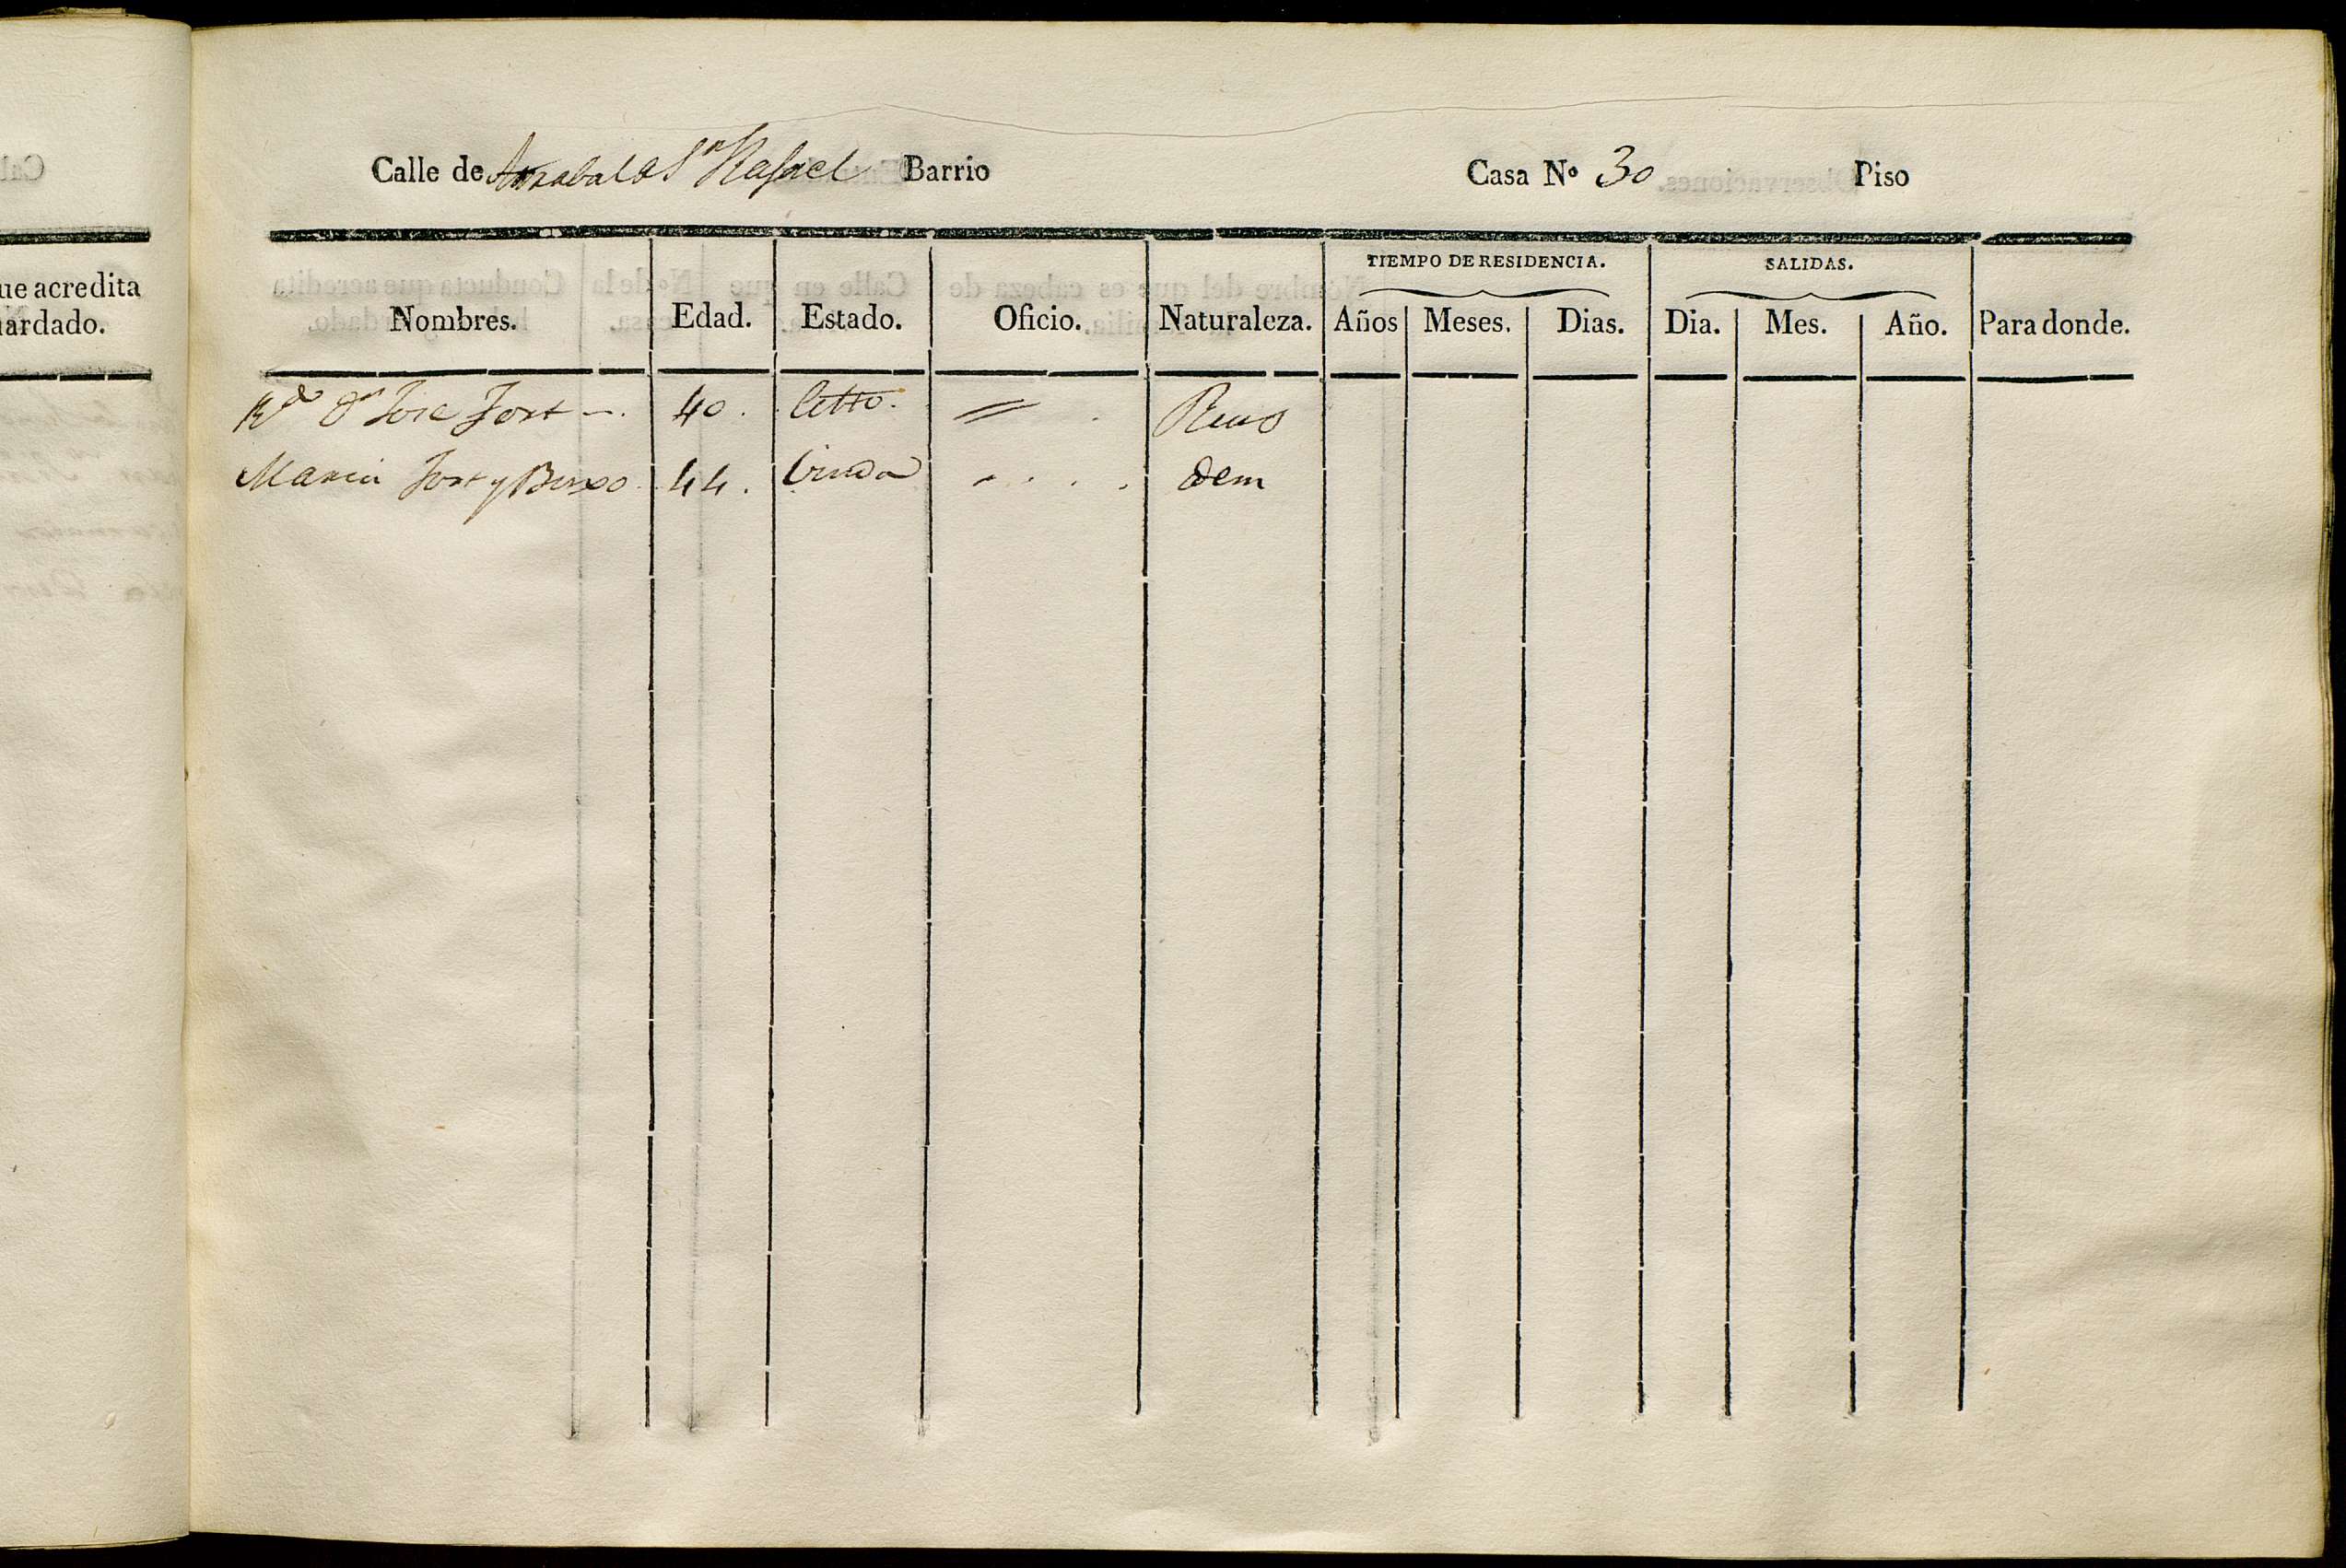 Calle de Arrabal de Sn Rafael Barrio Casa No 30 Piso
ue acredita
ardado.
TIEMPO DE RESIDENCIA. SALIDAS.
Nombres. Edad. Estado. Oficio. Naturaleza. Años Meses. Dias. Dia. Mes. Año. Para donde.
Rdo Dn Jose Fort 40. = Reus
Maria Fort y 44. Viuda dem